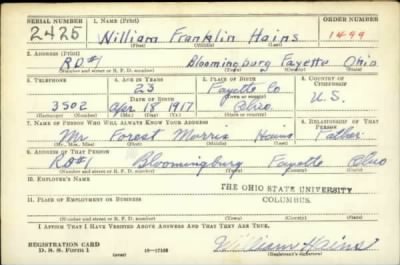 SERIAL NUMBER 1. NAME (Print) ORDER NUMBER
2425 William Franklin Hains 1499
(First) (Middle) (Last)
2. ADDRESS (Print)
RD#1 Bloomingburg Fayette Ohio
(Number and street or R. F. D. number) (Town) (County) (State)
3. TELEPHONE 4. AGE IN YEARS 5. PLACE OF BIRTH 6. COUNTRY OF CITIZENSHIP
23 Fayette Co
DATE OF BIRTH (Town or county)
3502 Apr 18 1917 Ohio U.S.
(Exchange) (Number) (Mo.) (Day) (Yr.) (State or country)
7. NAME OF PERSON WHO WILL ALWAYS KNOW YOUR ADDRESS 8. RELATIONSHIP OF THAT PERSON
Mr. Forest Morris Hains Father
(Mr., Mrs., Miss) (First) (Middle) (Last)
9. ADDRESS OF THAT PERSON
RD#1 Bloomingburg Fayette Ohio
(Number and street or R. F. D. number) (Town) (County) (State)
10. EMPLOYER'S NAME
THE OHIO STATE UNIVERSITY
11. PLACE OF EMPLOYMENT OR BUSINESS
COLUMBUS,
(Number and street or R. F. D. number) (Town) (County) (State)
I AFFIRM THAT I HAVE VERIFIED ABOVE ANSWERS AND THAT THEY ARE TRUE.
REGISTRATION CARD
D. S. S. Form 1 (over) William Hains
(Registrant's signature)